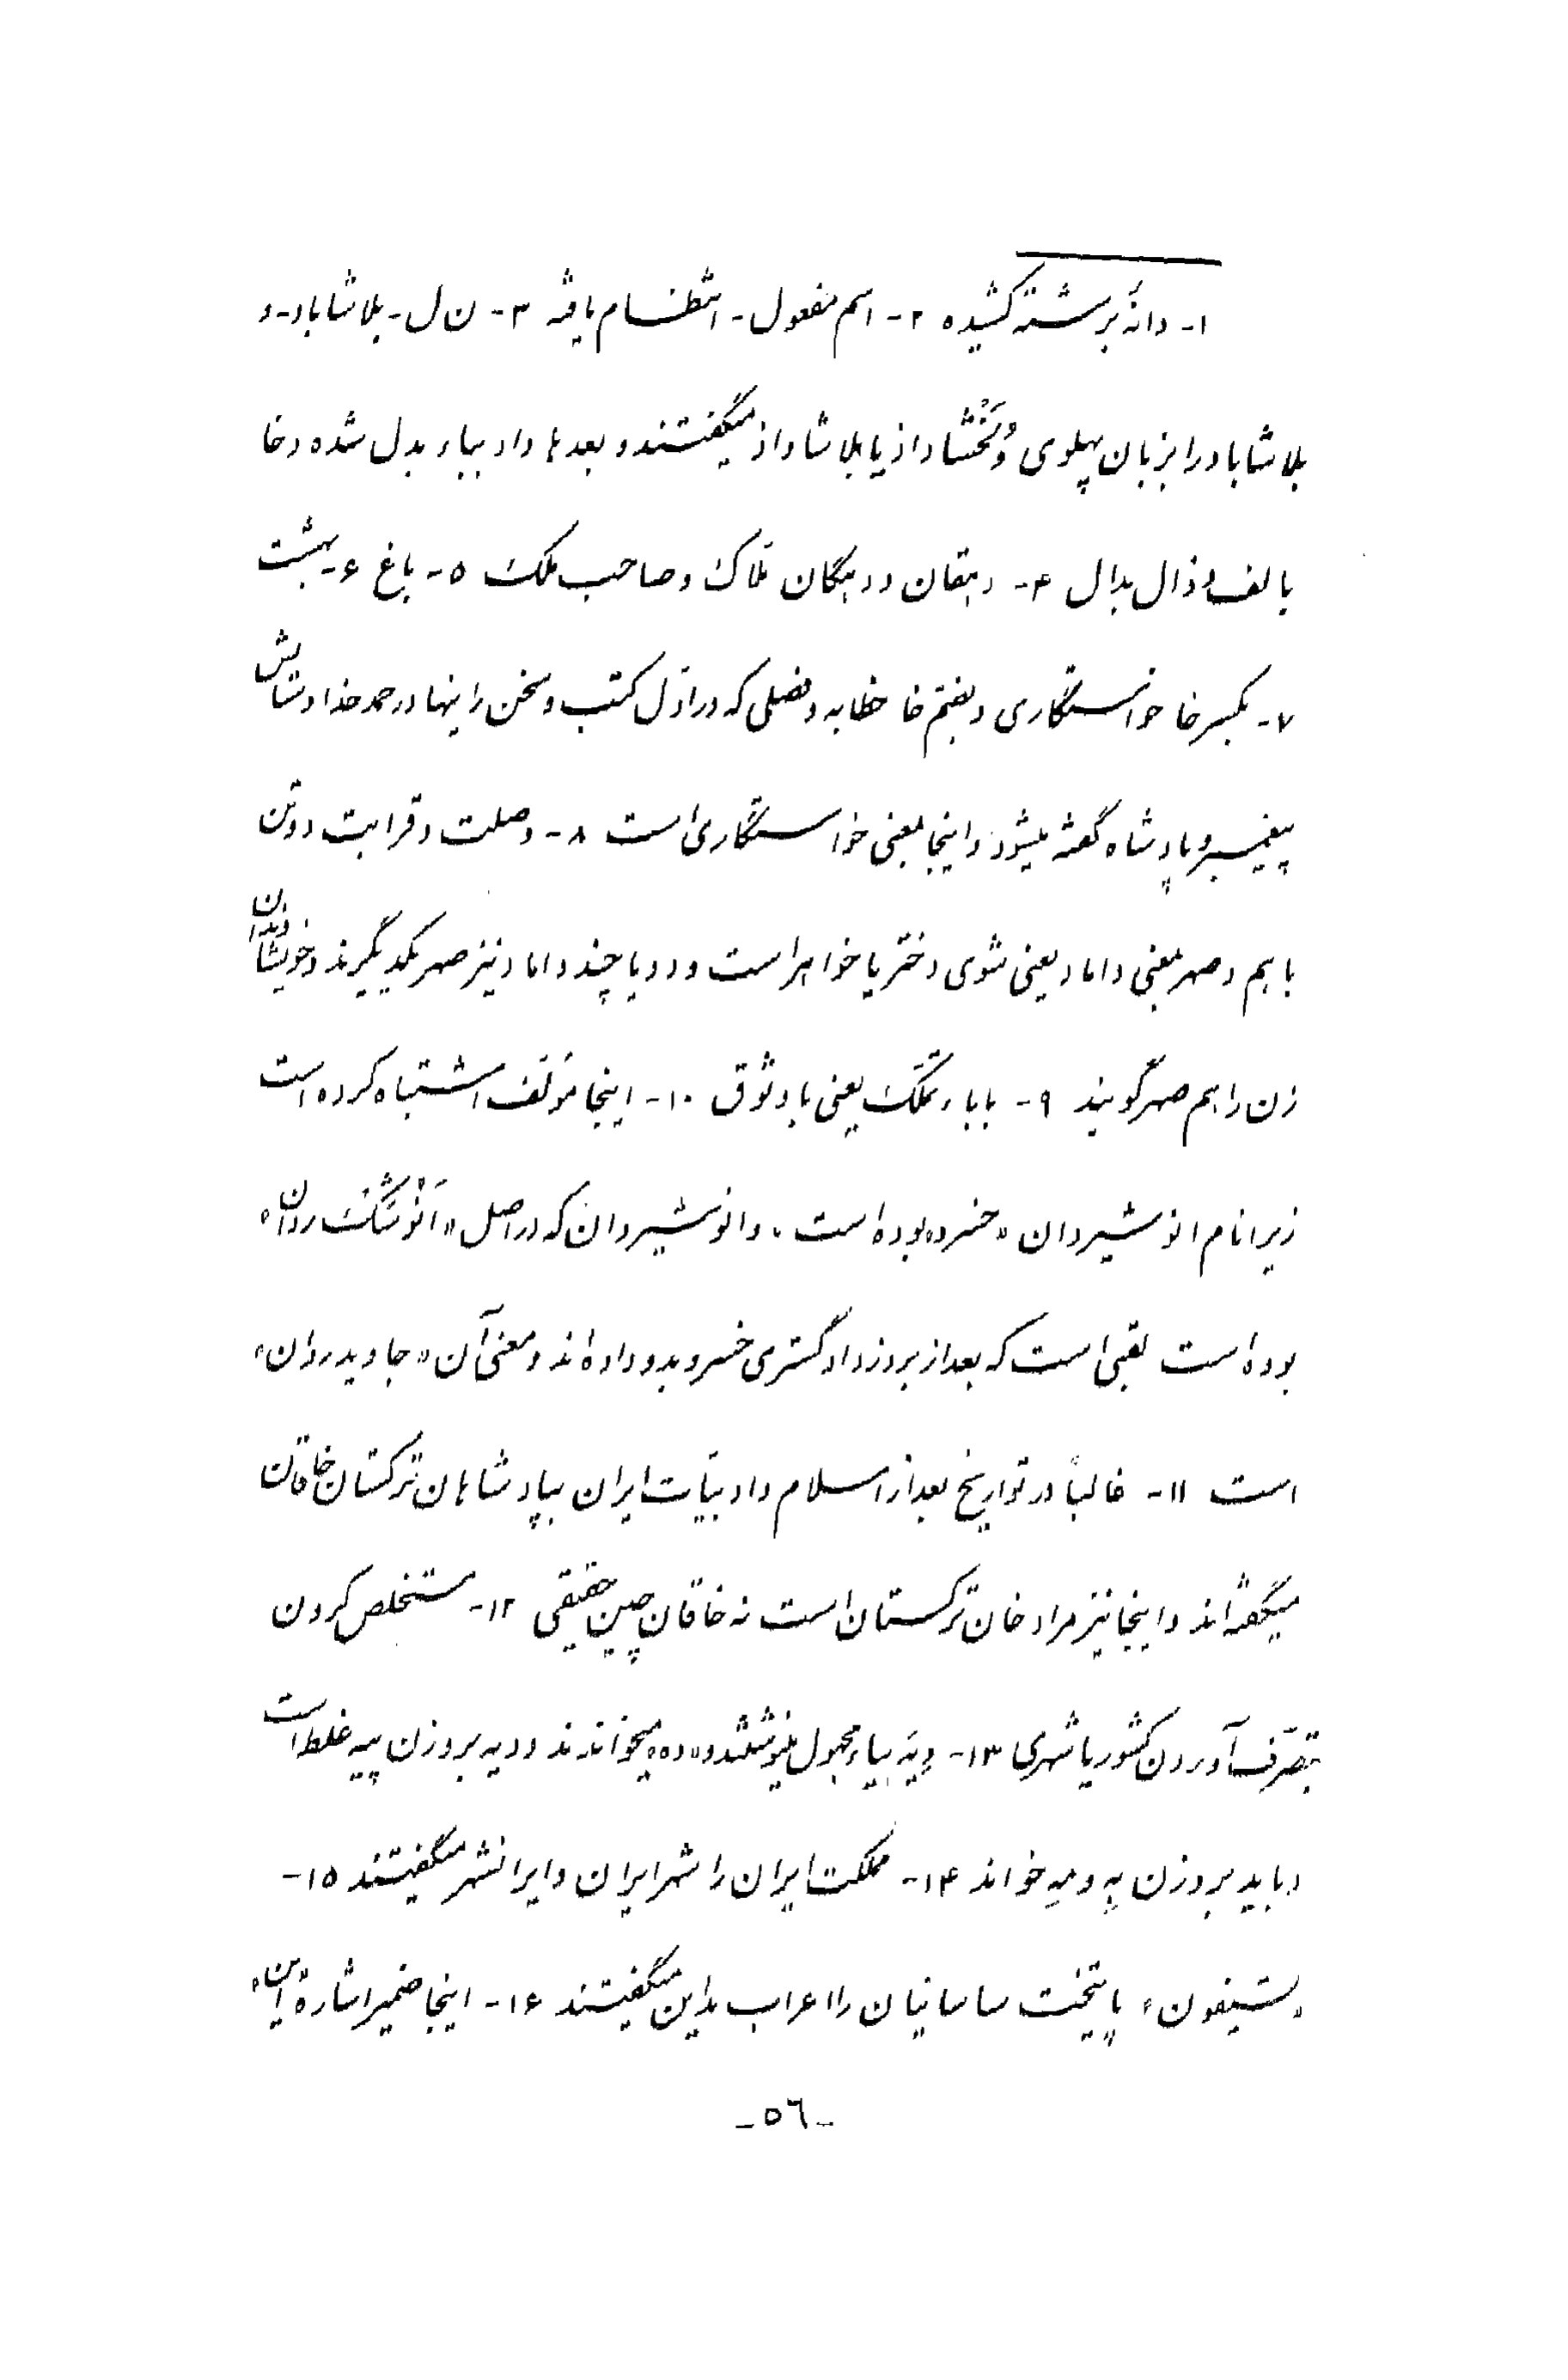 ۱- دانهٔ برشته کشیده ۲- اسم مفعول - انتظام یافته ۳- ن ل - بلاشاباد - و
بلاشاباد را بزبان پهلوی وُلَخْشاداذ یا بلاشاداذ میگفتند و بعدها واو بباء بدل شده و خا
بالف و ذال بدال ۴- دهقان و دهگان مَلّاک و صاحب ملک ۵- باغ ۶- بهشت
۷- بکسر خا خواستگاری و بضمّ خا خطابه و فصلی که در اوّل کتب و سخن رانیها در حمد خدا و ستایش
پیغمبر و پادشاه گفته میشود و اینجا بمعنی خواستگاری است ۸- وصلت و قرابت دو تن
با هم و صهر بمعنی داماد یعنی شوی دختر یا خواهر است و دو یا چند داماد نیز صهر یکدیگرند و خویشاوندان
زن را هم صهر گویند ۹- بابا، تمسّک یعنی با وثوق ۱۰- اینجا مؤلف اشتباه کرده است
زیرا نام انوشیروان «خسرو» بوده است، و انوشیروان که در اصل «اَنوْشَکْ روان»
بوده است لقبی است که بعد از بروز دادگستری خسرو بدو داده‌اند و معنی آن «جاوید روان»
است ۱۱- غالباً در تواریخ بعد از اسلام و ادبیّات ایران بپادشاهان ترکستان خاقان
میگفته‌اند و اینجا نیز مراد خان ترکستان است نه خاقان چین حقیقی ۱۲- مستخلص کردن
بتصرّف آوردن کشور یا شهری ۱۳- دِیَه بیاء مجهول مینوشتند و «ده» میخواندند و دیه بروزن پیه غلط است
و باید بروزن به و مه خواند ۱۴- مملکت ایران را شهر ایران و ایرانشهر میگفتند ۱۵-
«تسیفون» پایتخت ساسانیان را اعراب مداین میگفتند ۱۶- اینجا ضمیر اشارهٔ «این»
-۵۶-